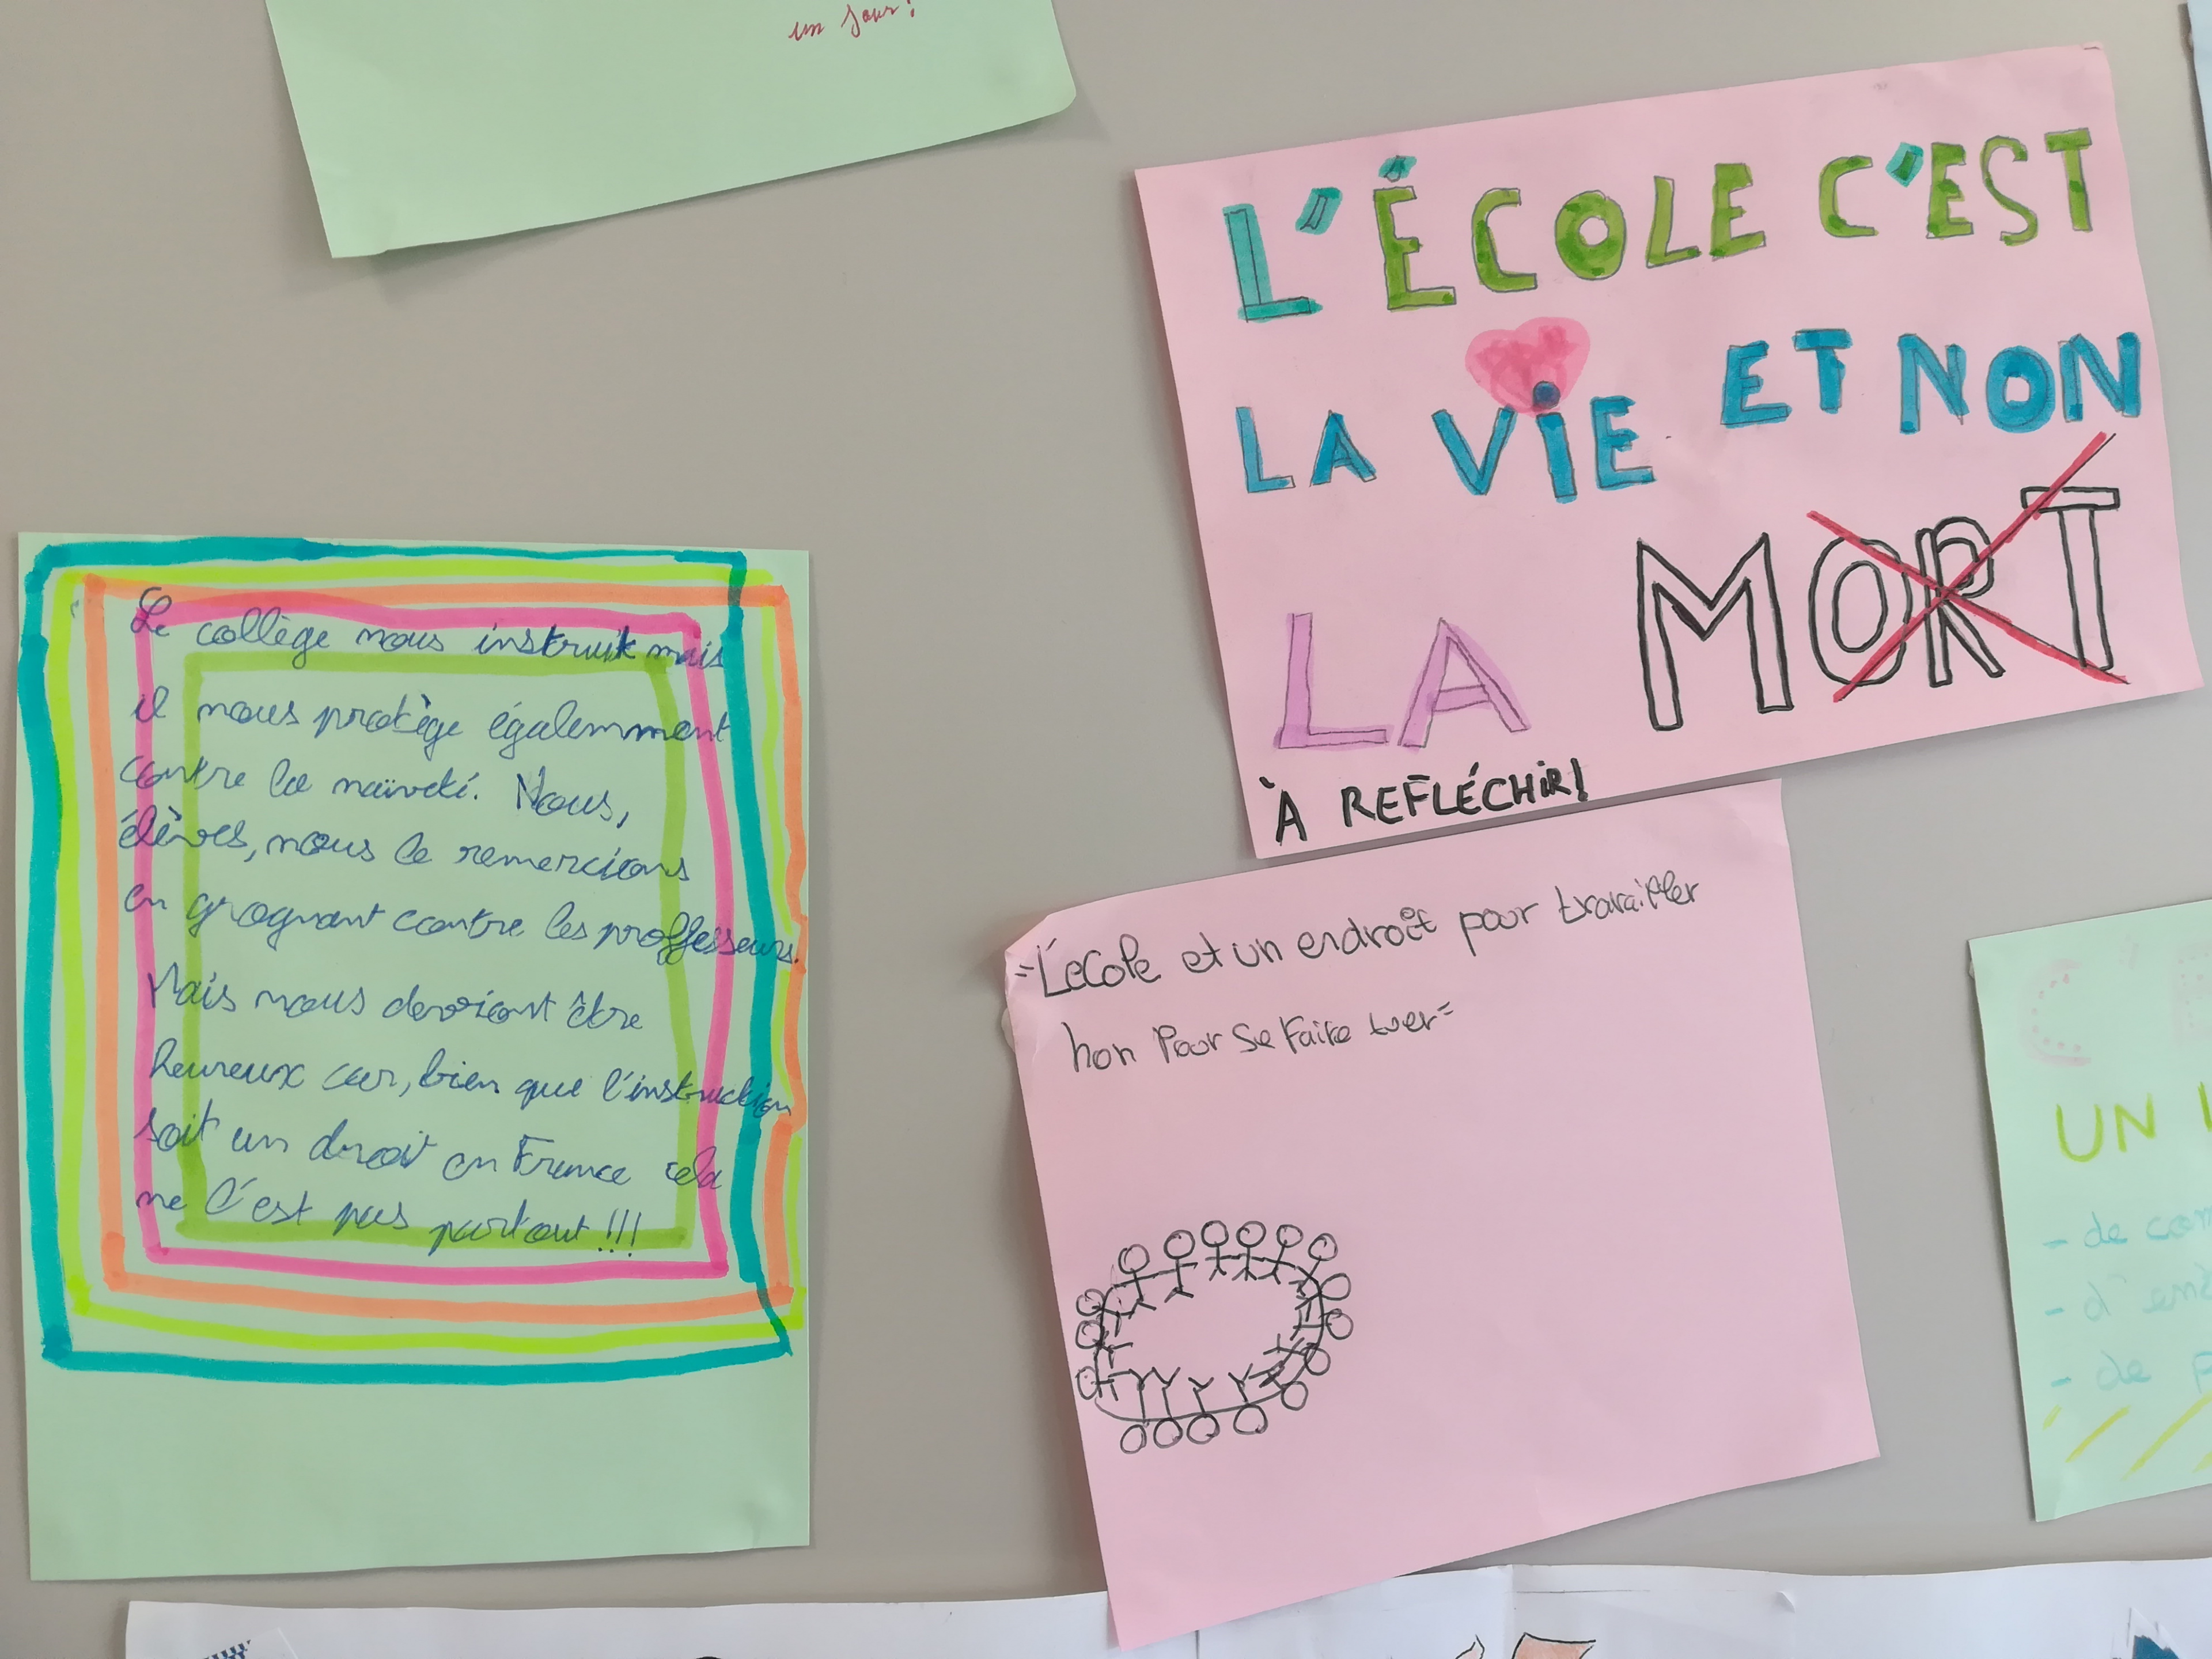 un jour!
L'ÉCOLE C'EST
LA ViE ET NON
LA MORT
À REFLÉCHiR!
Le collège nous instruit mais
il nous protège égalemment
contre la naïveté. Nous,
élèves, nous le remercions
en grognant contre les proffesseurs.
Mais nous devriont être
heureux car, bien que l'instruction
soit un droit en France cela
ne l'est pas partout!!!
=L'école et un endroit pour travailler
non Pour Se Faire tuer=
UN
- de
- d'
- de